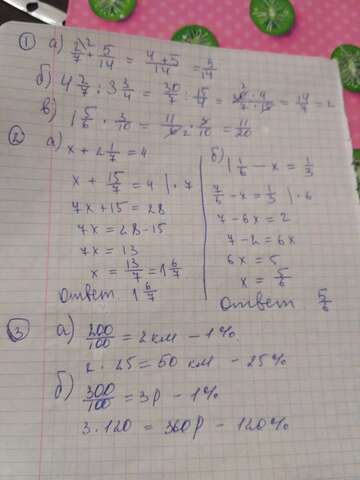 ① а) 2/7 + 5/14 = (4+5)/14 = 9/14
б) 4 2/7 : 3 3/4 = 30/7 : 15/4 = 30·4/7·15 = 14/7 = 2
в) 1 5/6 · 3/10 = 11/6 · 3/10 = 11/20
② а)
x + 2 1/7 = 4
x + 15/7 = 4 | · 7
7x + 15 = 28
7x = 28 - 15
7x = 13
x = 13/7 = 1 6/7
Ответ 1 6/7
б) 1 1/6 - x = 1/3
7/6 - x = 1/3 | · 6
7 - 6x = 2
7 - 2 = 6x
6x = 5
x = 5/6
Ответ 5/6
③ а) 200/100 = 2 км - 1%.
2 · 25 = 50 км - 25%
б) 300/100 = 3р - 1%
3 · 120 = 360р - 120%